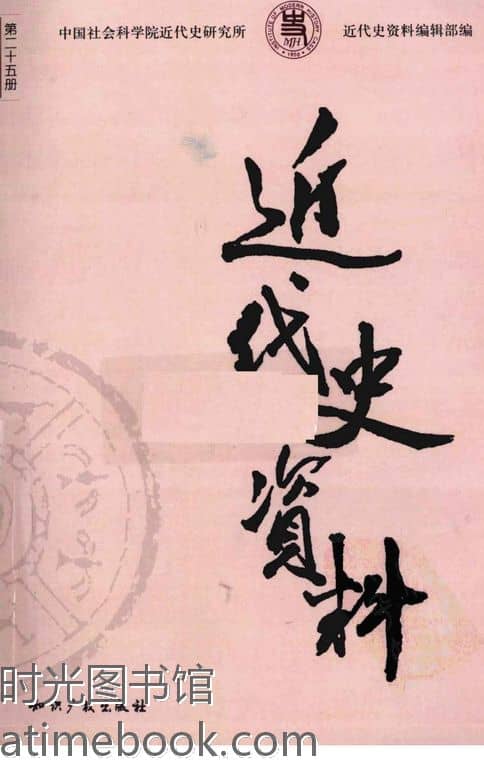 第二十五册
中国社会科学院近代史研究所
近代史资料编辑部编
INSTITUTE OF MODERN HISTORY CASS
MH
1950
近代史资料
时光图书馆
知识产权出版社
atimebook.com